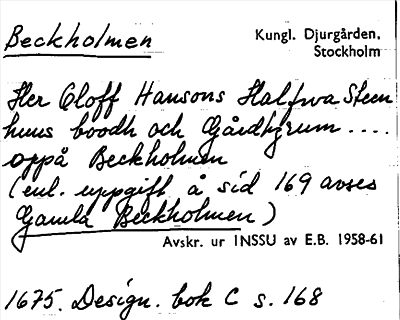 Beckholmen
Kungl. Djurgården,
Stockholm
Her Oloff Hansons Halfwa Steen
huus boodh och Gårdhzrum ....
oppå Beckholmen
(enl. uppgift å sid 169 avses
Gamla Beckholmen)
Avskr. ur INSSU av E.B. 1958-61
1675. Design. bok C s. 168